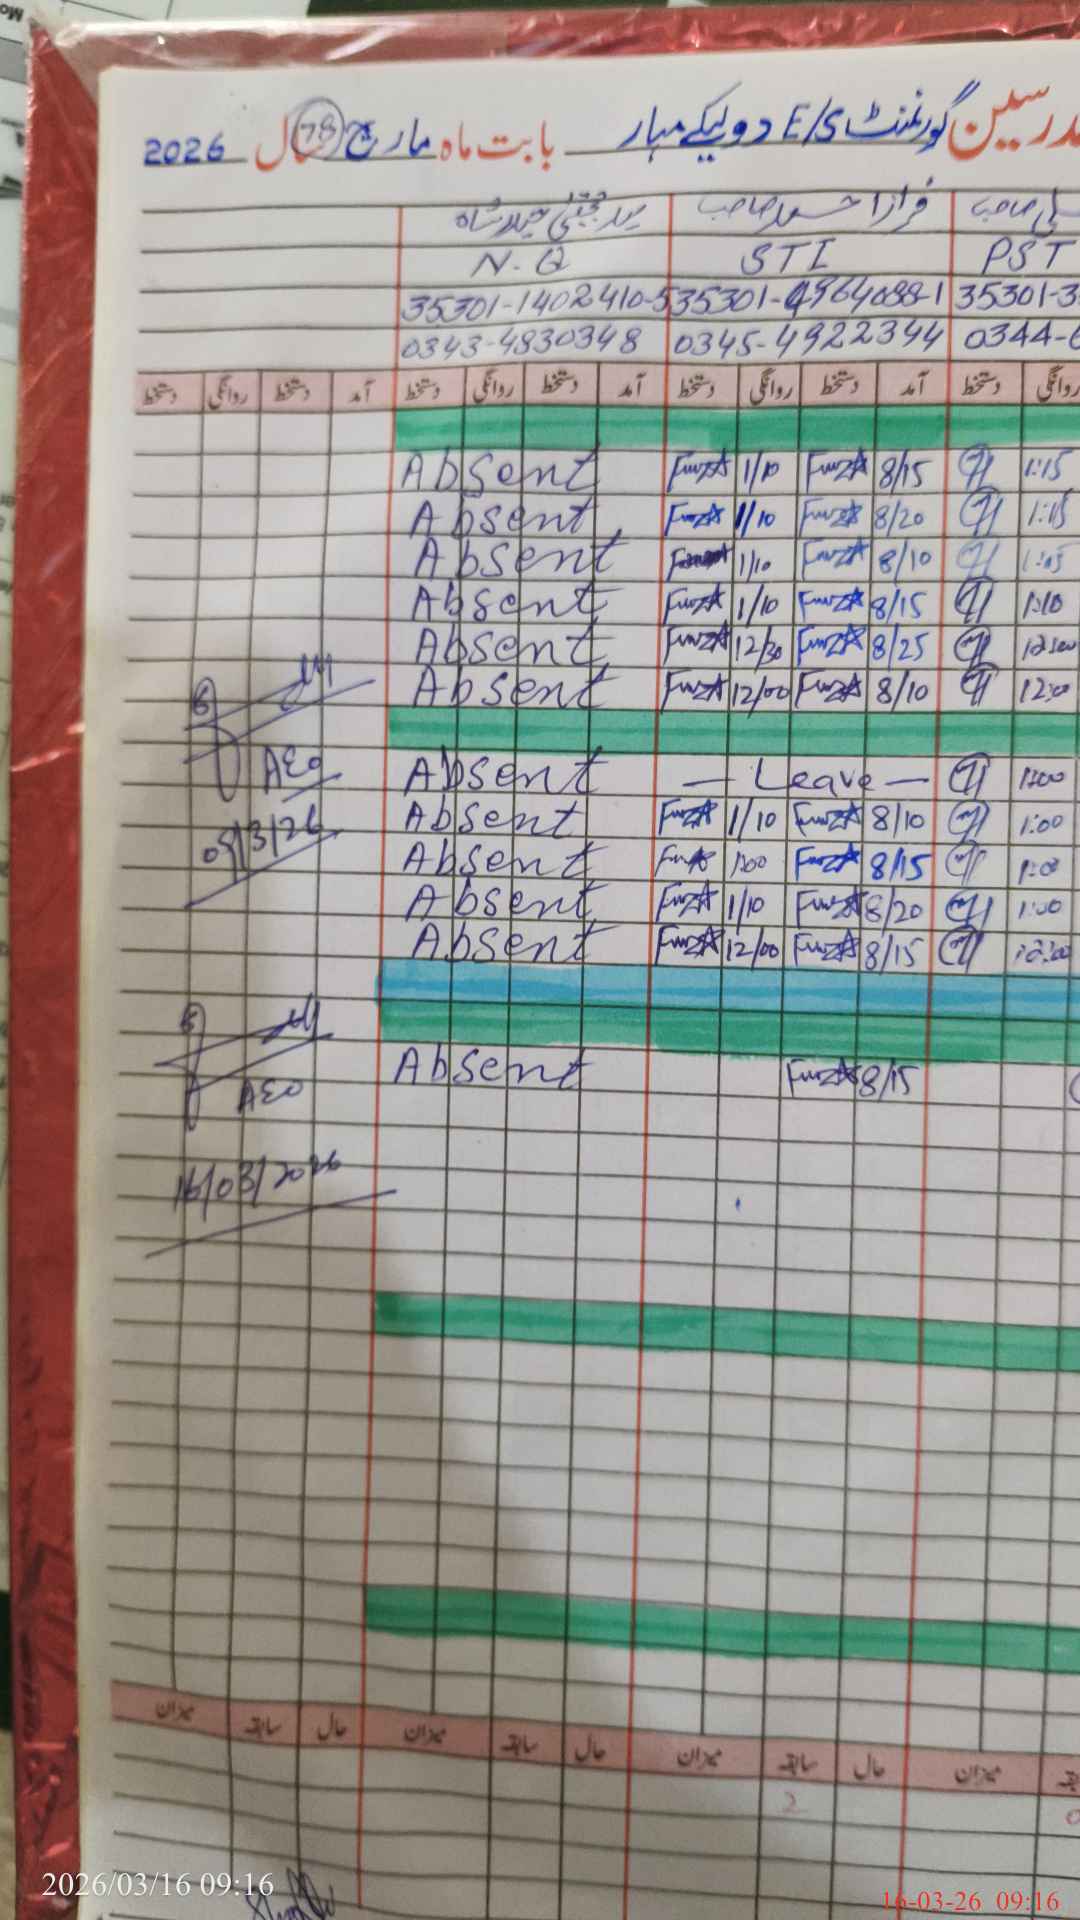 مدرسین گورنمنٹ E/S دولیکے مہار بابت ماہ مارچ سال 2026
78
فراز احمد صاحب
N-Q STI PST
35301-1402410-5 35301-4964088-1 35301-3
0343-4830348 0345-4922344 0344-6
روانگی دستخط آمد دستخط روانگی دستخط آمد دستخط روانگی دستخط آمد دستخط روانگی دستخط
1:15 8/15 Furza 1/10 Furza Absent
1:15 8/20 Furza 1/10 Furza Absent
1:05 8/10 Furza 1/10 Absent
1:10 8/15 Furza 1/10 Furza Absent
8/25 Furza 12/30 Furza Absent
12:00 8/10 Furza 12/00 Furza Absent
— Leave — Absent
AEO
1:00 8/10 Furza 1/10 Furza Absent
05/3/26
1:00 8/15 Furza 1:00 Furza Absent
1:00 8/20 Furza 1/10 Furza Absent
12:00 8/15 Furza 12/00 Furza Absent
8/15 Furza Absent
AEO
16/03/2026
میزان حال سابقہ میزان حال سابقہ میزان حال سابقہ میزان
2
0
2026/03/16 09:16
16-03-26 09:16